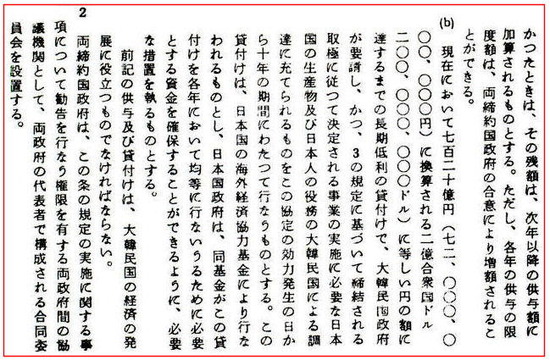 かつたときは、その残額は、次年以降の供与額に
加算されるものとする。ただし、各年の供与の限
度額は、両締約国政府の合意により増額されるこ
とができる。
(b) 現在において七百二十億円（七二、〇〇〇、〇
〇〇、〇〇〇円）に換算される二億合衆国ドル
（二〇〇、〇〇〇、〇〇〇ドル）に等しい円の額に
達するまでの長期低利の貸付けで、大韓民国政府
が要請し、かつ、3の規定に基づいて締結される
取極に従つて決定される事業の実施に必要な日本
国の生産物及び日本人の役務の大韓民国による調
達に充てられるものをこの協定の効力発生の日か
ら十年の期間にわたつて行なうものとする。この
貸付けは、日本国の海外経済協力基金により行な
われるものとし、日本国政府は、同基金がこの貸
付けを各年において均等に行ないうるために必要
とする資金を確保することができるように、必要
な措置を執るものとする。
前記の供与及び貸付けは、大韓民国の経済の発
展に役立つものでなければならない。
2 両締約国政府は、この条の規定の実施に関する事
項について勧告を行なう権限を有する両政府間の協
議機関として、両政府の代表者で構成される合同委
員会を設置する。